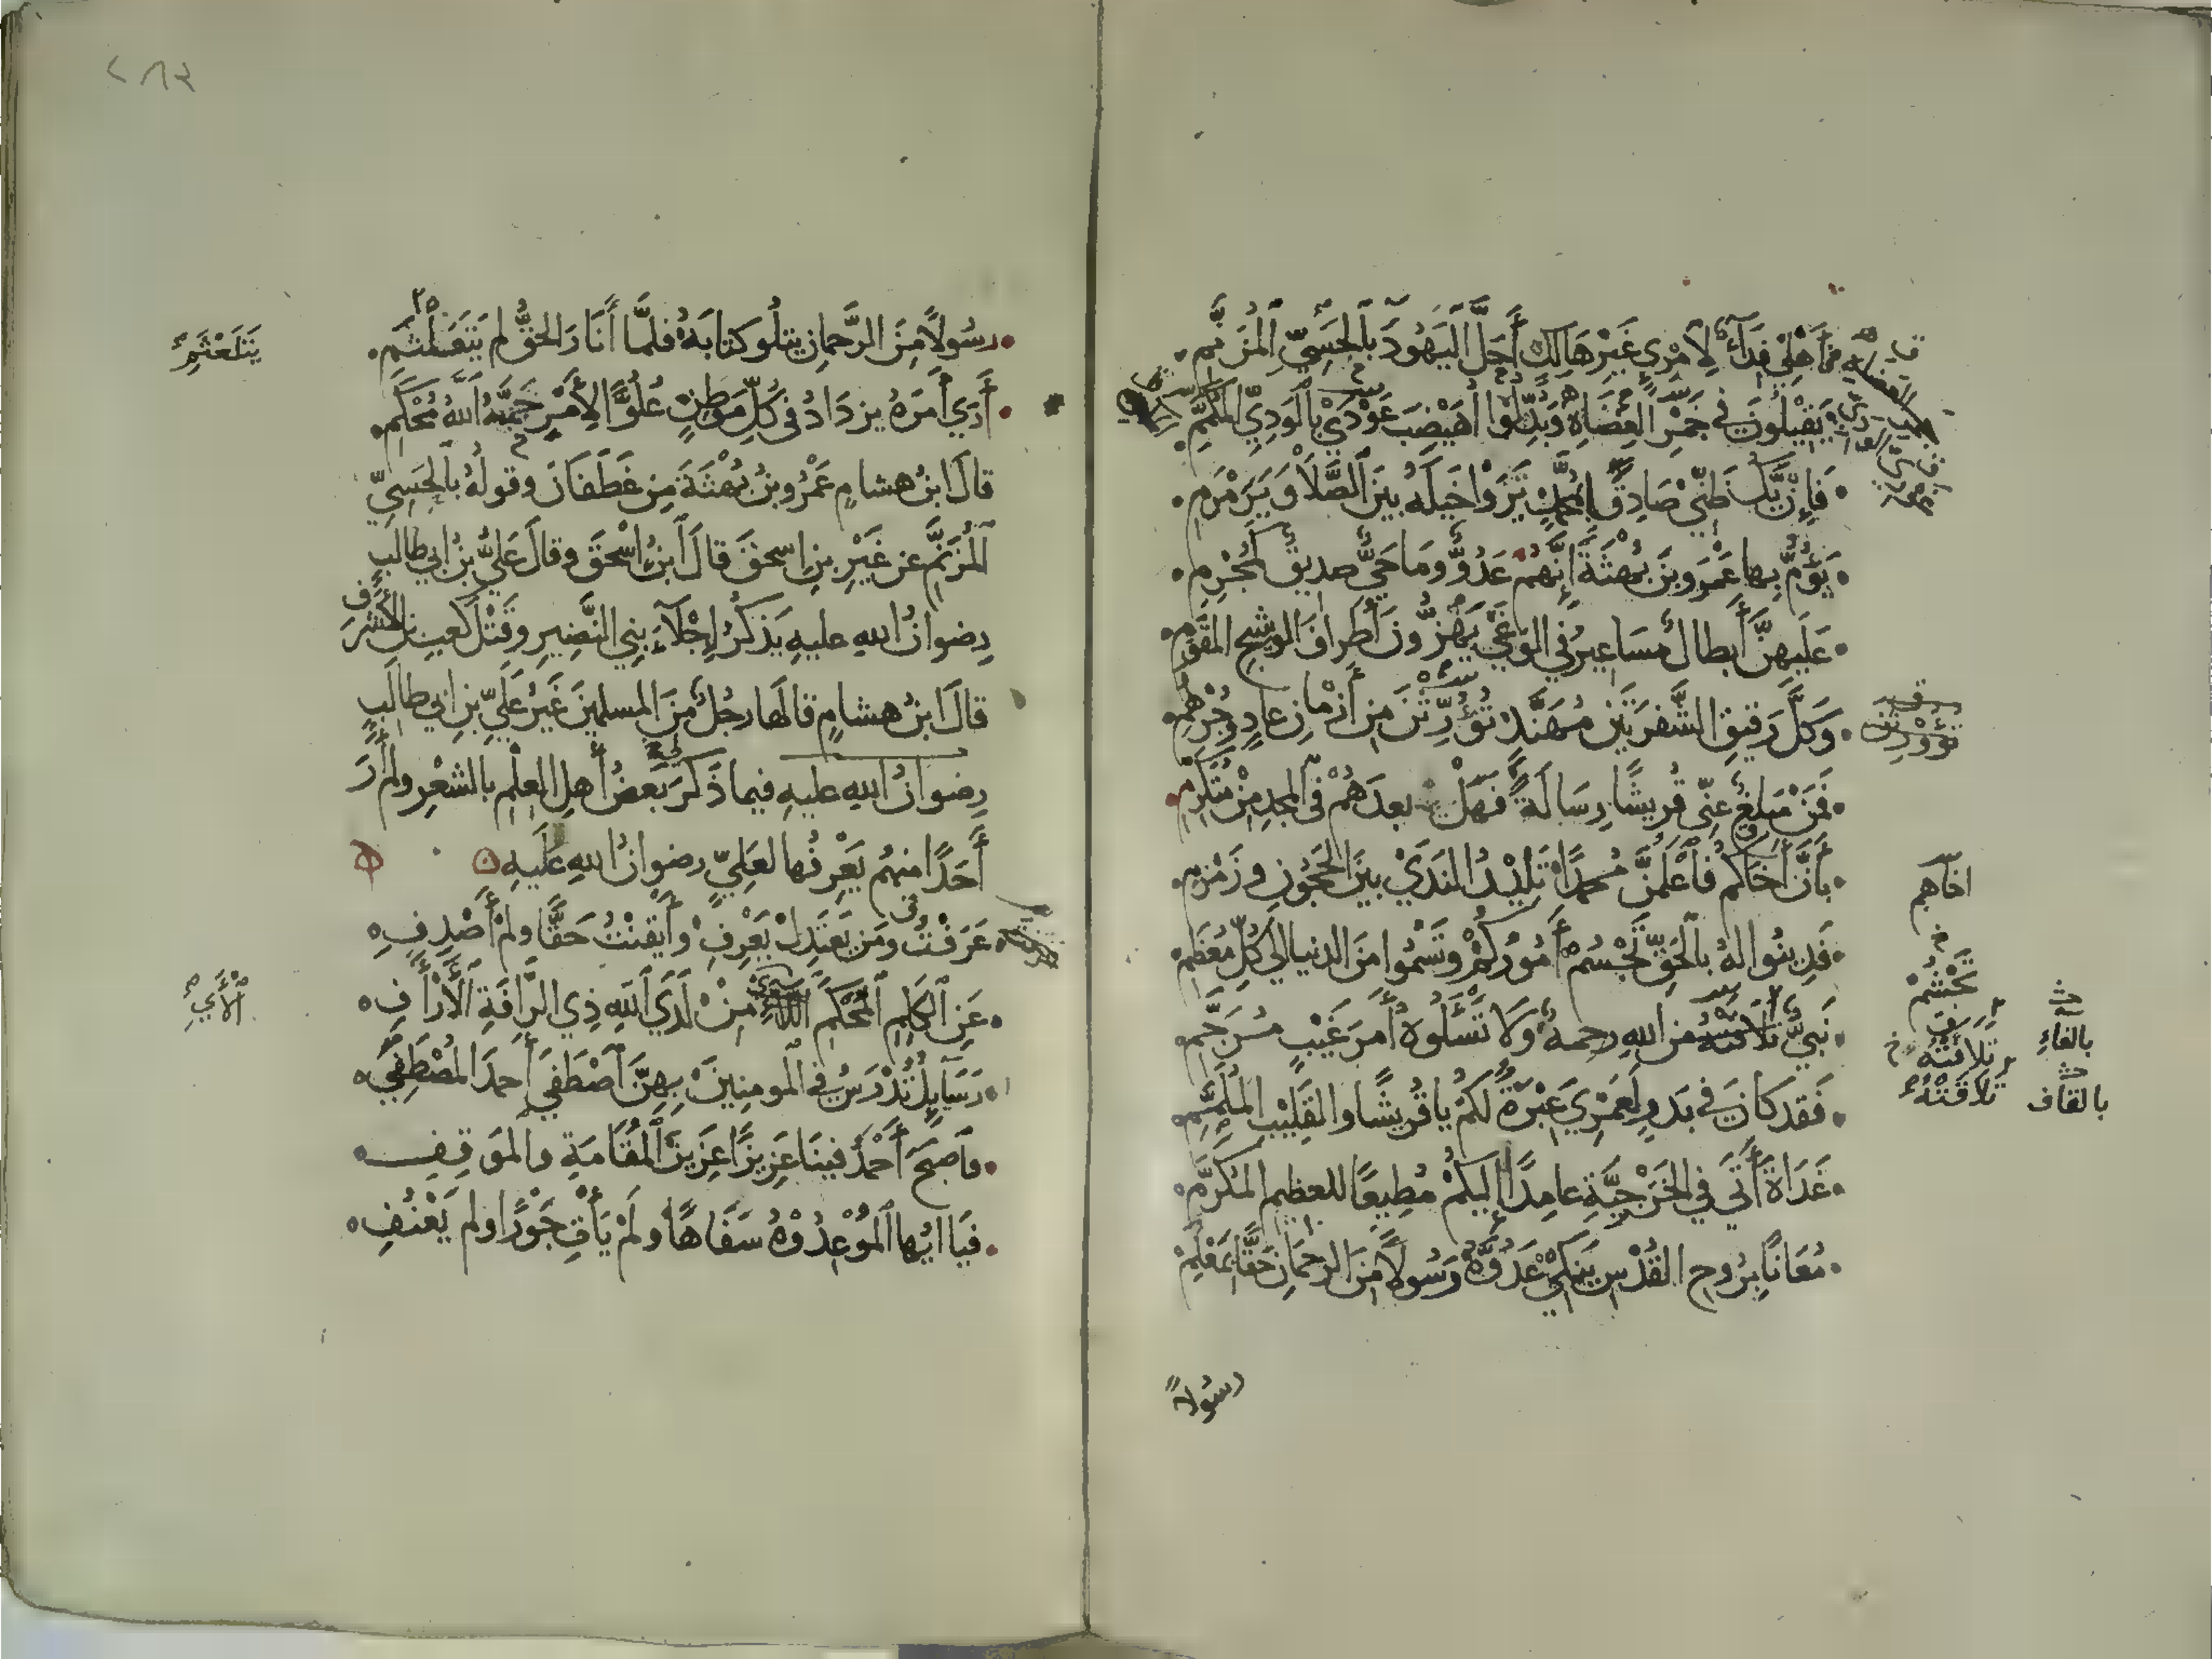 أَهْلِي فِدَاءٌ لِامْرِئٍ غَيْرِ هَالِكٍ أَجَلَّ الْيَهُودَ بِالْحَسِيِّ الْمُزَنَّمِ
يَقِيلُونَ فِي جَمْرِ الْعِضَاهِ وَبُدِّلُوا أُهَيْضِبَ عَوْدَى بِالْوَدِيِّ الْمُكَمَّمِ
فَإِنْ يَكُ ظَنِّي صَادِقًا بِمُحَمَّدٍ تَرَوْا خَيْلَهُ بَيْنَ الصَّلَا وَيَرَمْرَمِ
يَؤُمُّ بِهَا عَمْرَو بْنَ بُهْثَةَ إِنَّهُمْ عَدُوٌّ وَمَا حَيٌّ صَدِيقٌ كَمُجْرِمِ
عَلَيْهِنَّ أَبْطَالٌ مَسَاعِيرُ فِي الْوَغَى يَهُزُّونَ أَطْرَافَ الْوَشِيجِ الْمُقَوَّمِ
وَكُلَّ رَقِيقِ الشَّفْرَتَيْنِ مُهَنَّدٍ تُوُرِّثْنَ مِنْ أَزْمَانِ عَادٍ وَجُرْهُمِ
تُوُورِثْنَ
فَمَنْ مُبْلِغٌ عَنِّي قُرَيْشًا رِسَالَةً فَهَلْ بَعْدَهُمْ فِي الْمَجْدِ مِنْ مُتَكَرِّمِ
بِأَنَّ أَخَاكُمْ فَاعْلَمُنَّ مُحَمَّدًا تَلِيدُ النَّدَى بَيْنَ الْحَجُونِ وَزَمْزَمِ
اخاهم
فَدِينُوا لَهُ بِالْحَقِّ تَجْسُمْ أُمُورُكُمْ وَتَسْمُوا مِنَ الدُّنْيَا إِلَى كُلِّ مُعْظَمِ
تَجْشُمْ
نَبِيٌّ تَلَاقَتْهُ مِنَ اللهِ رَحْمَةٌ وَلَا تَسْأَلُوهُ أَمْرَ غَيْبٍ مُرَجَّمِ
تَلَافَتْهُ
بالفاء
تَلَاقَتْهُ
بالقاف
فَقَدْ كَانَ فِي بَدْرٍ لَعَمْرِي عِبْرَةٌ لَكُمْ يَا قُرَيْشًا وَالْقَلِيبِ الْمُلَمَّمِ
غَدَاةَ أَتَى فِي الْخَزْرَجِيَّةِ عَامِدًا إِلَيْكُمْ مُطِيعًا لِلْعَظِيمِ الْمُكَرَّمِ
مُعَانًا بِرُوحِ الْقُدْسِ يَنْكِي عَدُوَّهُ رَسُولًا مِنَ الرَّحْمَانِ حَقًّا بِمَعْلَمِ
رسُولًا
٢٨٣
رَسُولًا مِنَ الرَّحْمَانِ يَتْلُو كِتَابَهُ فَلَمَّا أَنَارَ الْحَقُّ لَمْ يَتَلَعْثَمِ
يَتَلَعْثَمِ
أَرَى أَمْرَهُ يَزْدَادُ فِي كُلِّ مَوْطِنٍ عُلُوًّا لِأَمْرٍ حَمَّهُ اللهُ مُحْكَمِ
قَالَ ابْنُ هِشَامٍ عَمْرُو بْنُ بُهْثَةَ مِنْ غَطَفَانَ وَقَوْلُهُ بِالْحَسِيِّ
الْمُزَنَّمِ عَنْ غَيْرِ بْنِ إِسْحٰقَ قَالَ ابْنُ إِسْحٰقَ وَقَالَ عَلِيُّ بْنُ أَبِي طَالِبٍ
رِضْوَانُ اللهِ عَلَيْهِ يَذْكُرُ إِجْلَاءَ بَنِي النَّضِيرِ وَقَتْلَ كَعْبِ بْنِ الْأَشْرَفِ
قَالَ ابْنُ هِشَامٍ قَالَهَا رَجُلٌ مِنَ الْمُسْلِمِينَ غَيْرُ عَلِيِّ بْنِ أَبِي طَالِبٍ
رِضْوَانُ اللهِ عَلَيْهِ فِيمَا ذَكَرَ لِي بَعْضُ أَهْلِ الْعِلْمِ بِالشِّعْرِ وَلَمْ أَرَ
أَحَدًا مِنْهُمْ يَعْرِفُهَا لِعَلِيٍّ رِضْوَانُ اللهِ عَلَيْهِ
عَرَفْتُ وَمَنْ يَعْتَدِلْ يَعْرِفِ وَأَيْقَنْتُ حَقًّا وَلَمْ أَصْدِفِ
عَنِ الْكَلِمِ الْمُحْكَمِ مِنْ لَدَى اللهِ ذِي الرَّأْفَةِ الْأَرْأَفِ
الْآيِ
رَسَائِلُ تُدْرَسُ فِي الْمُومِنِينَ بِهِنَّ اصْطَفَى أَحْمَدَ الْمُصْطَفِي
فَأَصْبَحَ أَحْمَدُ فِينَا عَزِيزًا عَزِيزَ الْمُقَامَةِ وَالْمَوْقِفِ
فَيَا أَيُّهَا الْمُوعِدُوهُ سَفَاهًا وَلَمْ يَأْتِ جَوْرًا وَلَمْ يَعْنُفِ